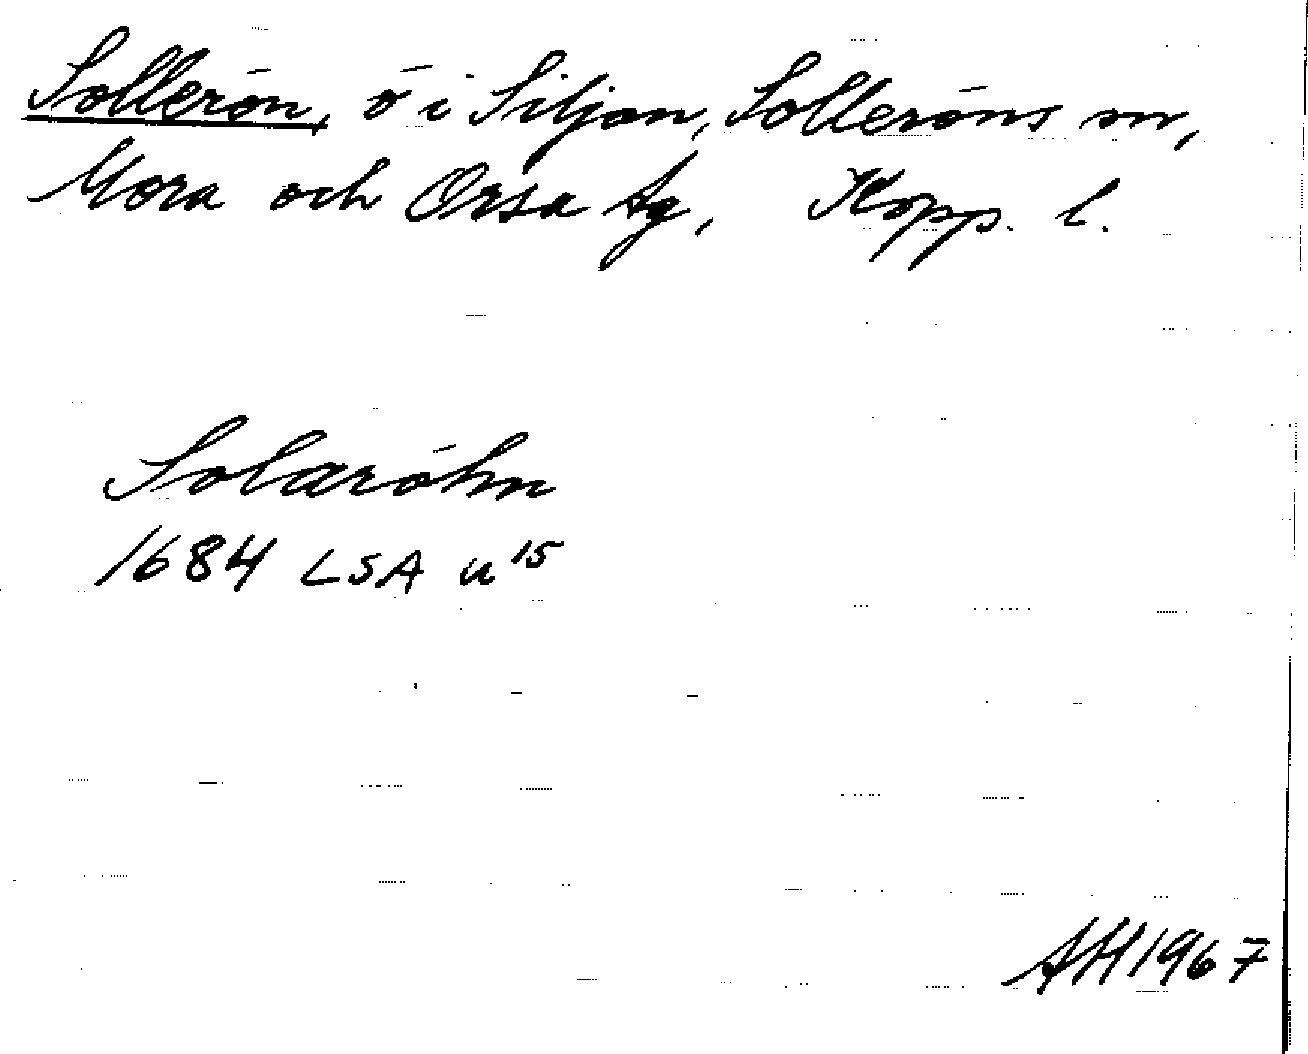 Sollerön, ö i Siljan, Solleröns sn,
Mora och Orsa tg, Kopp. l.
Solaröhn
1684 LSA u 15
AH 1967